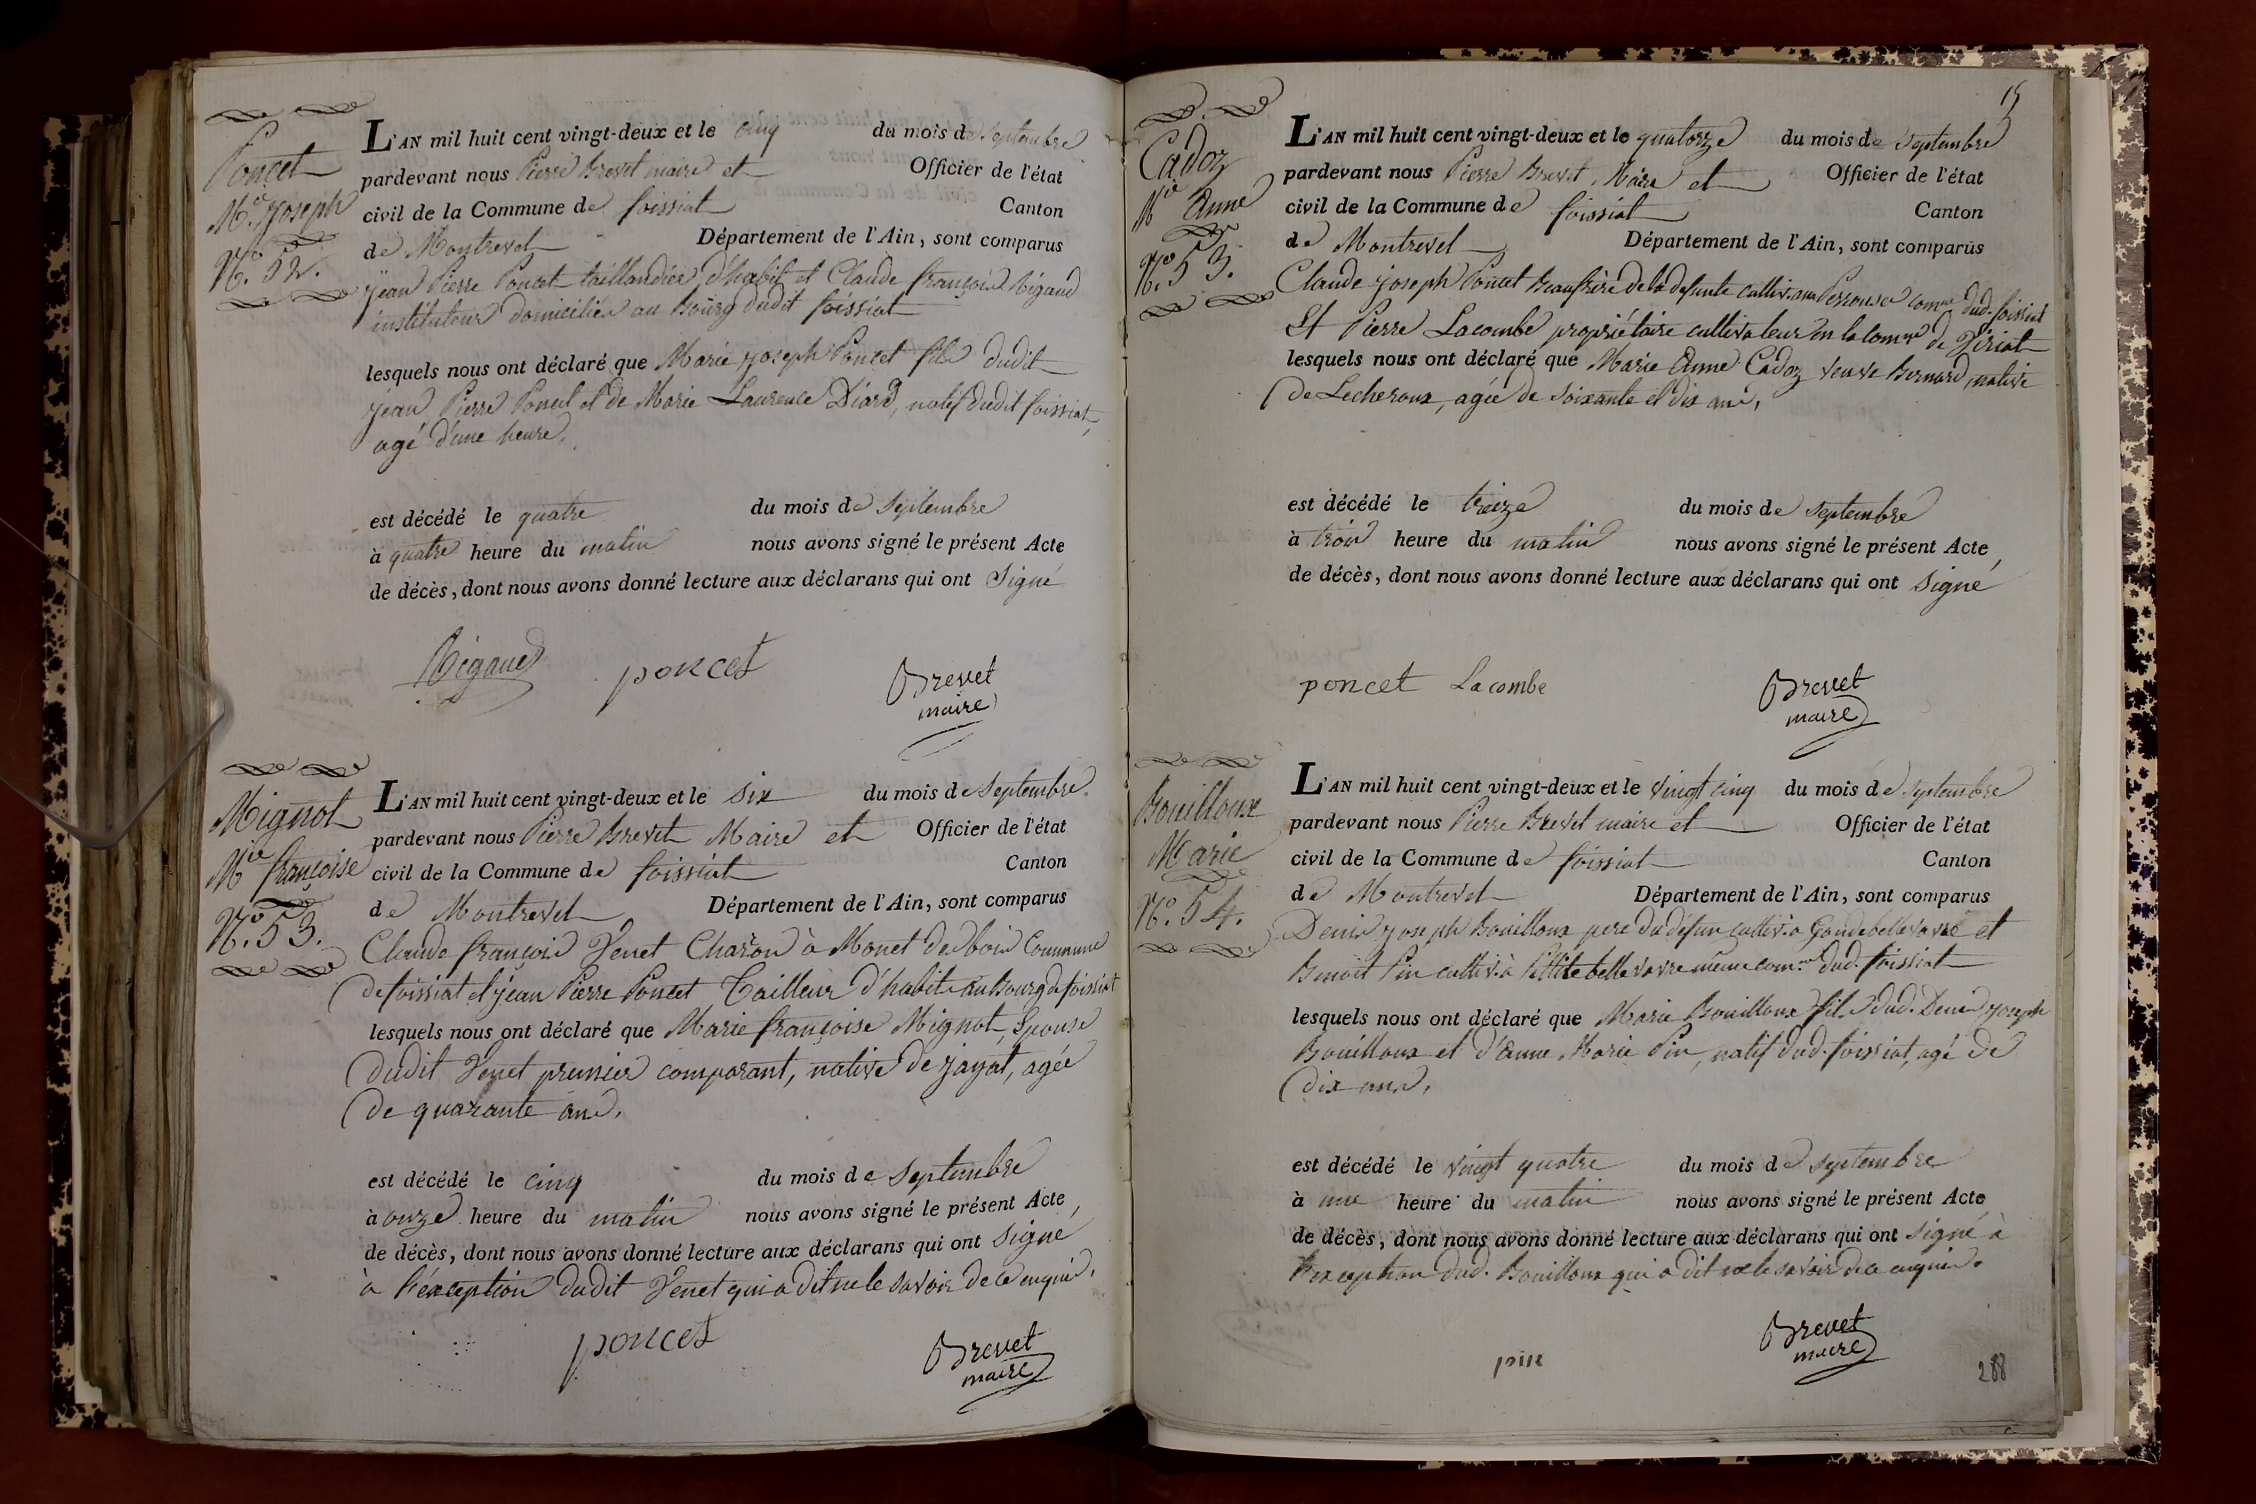 Poncet
M.ie Joseph
N.o 52.
L'AN mil huit cent vingt-deux et le cinq du mois de Septembre
pardevant nous Pierre Brevet maire et Officier de l'état
civil de la Commune de foissiat Canton
de Montrevel Département de l'Ain, sont comparus
jean Pierre Poncet taillandier d'habit et Claude françois Rigaud
instituteur domiciliés au Bourg dudit foissiat
lesquels nous ont déclaré que Marie joseph Poncet fils dudit
jean Pierre Poncet et de Marie Laurence Diard, natif dudit foissiat,
agé d'une heure,
est décédé le quatre du mois de Septembre
à quatre heure du matin nous avons signé le présent Acte
de décès, dont nous avons donné lecture aux déclarans qui ont Signé
Rigaud poncet Brevet
maire
Mignot
M.ie françoise
N.o 53.
L'AN mil huit cent vingt-deux et le six du mois de Septembre
pardevant nous Pierre Brevet Maire et Officier de l'état
civil de la Commune de foissiat Canton
de Montrevel Département de l'Ain, sont comparus
Claude françois Venet Charon à Monet des bois Commune
de foissiat et jean Pierre Poncet Tailleur d'habits au Bourg de foissiat
lesquels nous ont déclaré que Marie françoise Mignot, Epouse
dudit Venet premier comparant, native de jayat, agée
de quarante ans,
est décédé le cinq du mois de Septembre
à onze heure du matin nous avons signé le présent Acte,
de décès, dont nous avons donné lecture aux déclarans qui ont Signé
à l'éxception dudit Venet qui a dit ne le savoir de ce enquis.
poncet Brevet
maire
15
Cadoz
M.ie Anne
N.o 53.
L'AN mil huit cent vingt-deux et le quatorze du mois de Septembre
pardevant nous Pierre Brevet Maire et Officier de l'état
civil de la Commune de foissiat Canton
de Montrevel Département de l'Ain, sont comparus
Claude joseph Poncet Beaufrère de la défunte cultiv. aux Perrouses com.ne dud. foissiat
Et Pierre Lacombe propriétaire cultivateur en la com.ne de Viriat
lesquels nous ont déclaré que Marie Anne Cadoz veuve Bernard, native
de Lecheroux, agée de soixante et dix ans,
est décédé le treize du mois de Septembre
à trois heure du matin nous avons signé le présent Acte,
de décès, dont nous avons donné lecture aux déclarans qui ont signé
poncet Lacombe Brevet
maire
Bouilloux
Marie
N.o 54.
L'AN mil huit cent vingt-deux et le vingt cinq du mois de Septembre
pardevant nous Pierre Brevet maire et Officier de l'état
civil de la Commune de foissiat Canton
de Montrevel Département de l'Ain, sont comparus
Denis joseph Bouilloux pere du défun cultiv. à Grandebellevavre et
Benoit Pin cultiv. à Pitite bellevavre même com.ne dud. foissiat
lesquels nous ont déclaré que Marie Bouilloux fils dud. Denis joseph
Bouilloux et d'Anne Marie Pin, natif dud. foissiat, agé de
dix ans,
est décédé le vingt quatre du mois de Septembre
à une heure du matin nous avons signé le présent Acte
de décès, dont nous avons donné lecture aux déclarans qui ont signé à
l'exception dud. Bouilloux qui a dit ne le savoir de ce enquis.
pin Brevet
maire
288